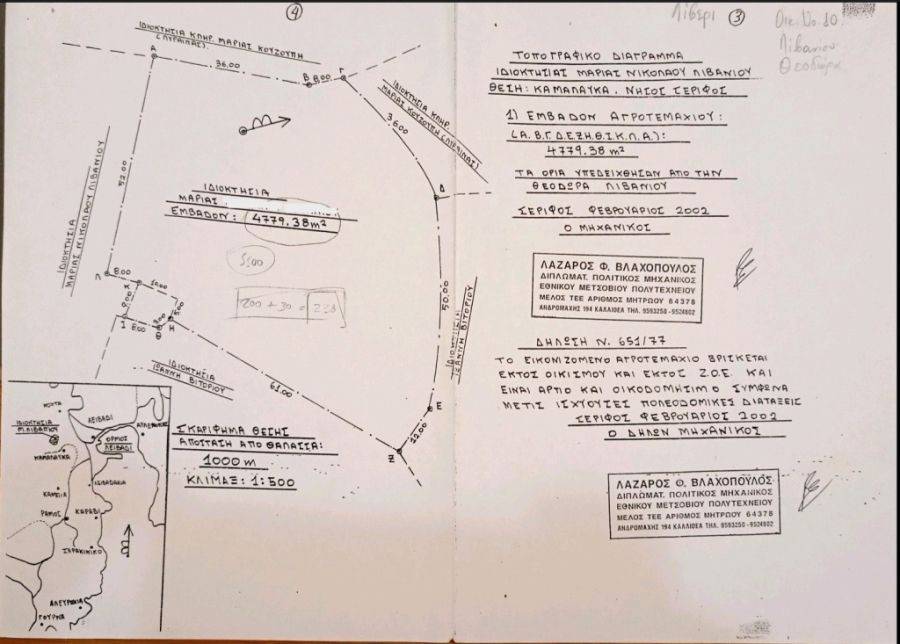 ④
ΙΔΙΟΚΤΗΣΙΑ ΚΛΗΡ. ΜΑΡΙΑΣ ΚΟΥΖΟΥΠΗ
(ΛΥΡΑΙΝΑΣ).
Α
36.00
Β
8.00
Γ
ΙΔΙΟΚΤΗΣΙΑ ΚΛΗΡ.
ΜΑΡΙΑΣ ΚΟΥΖΟΥΠΗ (ΛΥΡΑΙΝΑΣ)
36.00
Δ
ΙΔΙΟΚΤΗΣΙΑ
ΜΑΡΙΑΣ ΝΙΚΟΛΑΟΥ ΛΙΒΑΝΙΟΥ
52.00
ΙΔΙΟΚΤΗΣΙΑ
ΜΑΡΙΑΣ
ΕΜΒΑΔΟΝ: 4779.38m²
200 + 30 =
8.00
10.00
5.00
9.00
Ι
8.00
Θ
Η
ΙΔΙΟΚΤΗΣΙΑ
ΙΩΑΝΝΗ ΒΙΤΟΡΙΟΥ
61.00
50.00
ΙΔΙΟΚΤΗΣΙΑ
ΙΩΑΝΝΗ ΒΙΤΟΡΙΟΥ
Ε
12.00
Ζ
ΣΚΑΡΙΦΗΜΑ ΘΕΣΗΣ
ΑΠΟΣΤΑΣΗ ΑΠΟ ΘΑΛΑΣΣΑ:
1000m
ΚΛΙΜΑΞ: 1:500
ΙΔΙΟΚΤΗΣΙΑ
Μ.ΛΙΒΑΝΙΟΥ
ΛΕΙΒΑΔΙ
ΟΡΜΟΣ
ΛΕΙΒΑΔΙ
ΚΑΜΑΛΑΥΚΑ
ΛΙΒΑΔΑΚΙΑ
ΡΑΜΟΣ
ΚΑΡΑΒΙ
ΤΣΙΛΑΚΙΝΙΚΟ
ΓΟΥΡΝΑ
Λιβερι
③
Οικ. Νο. 10.
Λιβανίου
Θεοδώρα
ΤΟΠΟΓΡΑΦΙΚΟ ΔΙΑΓΡΑΜΜΑ
ΙΔΙΟΚΤΗΣΙΑΣ ΜΑΡΙΑΣ ΝΙΚΟΛΑΟΥ ΛΙΒΑΝΙΟΥ
ΘΕΣΗ: ΚΑΜΑΛΑΥΚΑ. ΝΗΣΟΣ ΣΕΡΙΦΟΣ
1) ΕΜΒΑΔΟΝ ΑΓΡΟΤΕΜΑΧΙΟΥ:
(Α.Β.Γ.Δ.Ε.Ζ.Η.Θ.Ι.Κ.Λ.Α.):
4779.38 m²
ΤΑ ΟΡΙΑ ΥΠΕΔΕΙΧΘΗΣΑΝ ΑΠΟ ΤΗΝ
ΘΕΟΔΩΡΑ ΛΙΒΑΝΙΟΥ
ΣΕΡΙΦΟΣ ΦΕΒΡΟΥΑΡΙΟΣ 2002
Ο ΜΗΧΑΝΙΚΟΣ
ΛΑΖΑΡΟΣ Φ. ΒΛΑΧΟΠΟΥΛΟΣ
ΔΙΠΛΩΜΑΤ. ΠΟΛΙΤΙΚΟΣ ΜΗΧΑΝΙΚΟΣ
ΕΘΝΙΚΟΥ ΜΕΤΣΟΒΙΟΥ ΠΟΛΥΤΕΧΝΕΙΟΥ
ΜΕΛΟΣ ΤΕΕ ΑΡΙΘΜΟΣ ΜΗΤΡΩΟΥ 64378
ΑΝΔΡΟΜΑΧΗΣ 194 ΚΑΛΛΙΘΕΑ ΤΗΛ. 9593250 - 9524802
ΔΗΛΩΣΗ Ν. 651/77
ΤΟ ΕΙΚΟΝΙΖΟΜΕΝΟ ΑΓΡΟΤΕΜΑΧΙΟ ΒΡΙΣΚΕΤΑΙ
ΕΚΤΟΣ ΟΙΚΙΣΜΟΥ ΚΑΙ ΕΚΤΟΣ Ζ.Ο.Ε. ΚΑΙ
ΕΙΝΑΙ ΑΡΤΙΟ ΚΑΙ ΟΙΚΟΔΟΜΗΣΙΜΟ ΣΥΜΦΩΝΑ
ΜΕ ΤΙΣ ΙΣΧΥΟΥΣΕΣ ΠΟΛΕΟΔΟΜΙΚΕΣ ΔΙΑΤΑΞΕΙΣ
ΣΕΡΙΦΟΣ ΦΕΒΡΟΥΑΡΙΟΣ 2002
Ο ΔΗΛΩΝ ΜΗΧΑΝΙΚΟΣ
ΛΑΖΑΡΟΣ Φ. ΒΛΑΧΟΠΟΥΛΟΣ
ΔΙΠΛΩΜΑΤ. ΠΟΛΙΤΙΚΟΣ ΜΗΧΑΝΙΚΟΣ
ΕΘΝΙΚΟΥ ΜΕΤΣΟΒΙΟΥ ΠΟΛΥΤΕΧΝΕΙΟΥ
ΜΕΛΟΣ ΤΕΕ ΑΡΙΘΜΟΣ ΜΗΤΡΩΟΥ 64378
ΑΝΔΡΟΜΑΧΗΣ 194 ΚΑΛΛΙΘΕΑ ΤΗΛ. 9593250 - 9524802